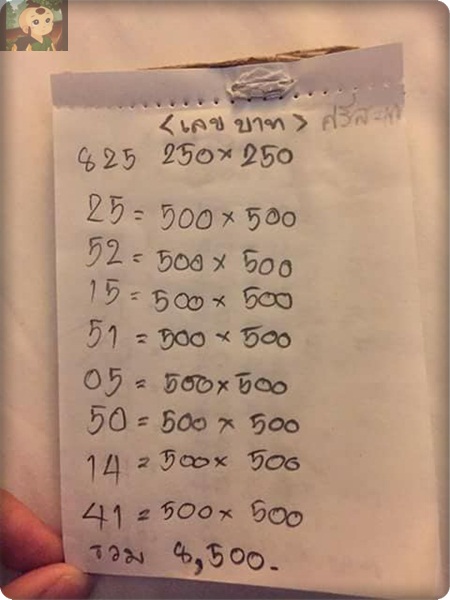 <เลข บาท>
825 250×250
25 = 500 × 500
52 = 500 × 500
15 = 500 × 500
51 = 500 × 500
05 = 500 × 500
50 = 500 × 500
14 = 500 × 500
41 = 500 × 500
รวม 8,500.-